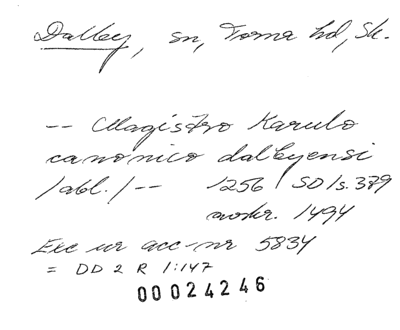 Dalby, sn, Torna hd, Sk.
-- Magistro Karulo
canonico dalbyensi
/abl./-- 1256 SD 1 s. 379
avskr. 1494
Exc ur acc-nr 5834
= DD 2 R 1:147
00024246